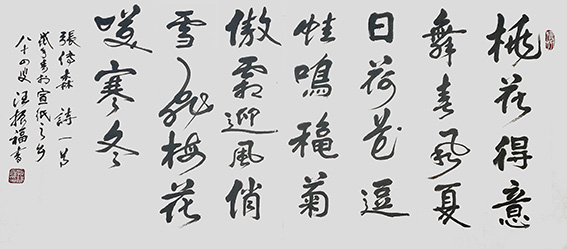 桃花得意
舞春風夏
日荷花逗
蛙鳴穐菊
傲霜迎風俏
雪飛梅花
喚寒冬
張傳森 詩一首
歲在戊戌初宣紙之鄉
八十四叟 汪振福書